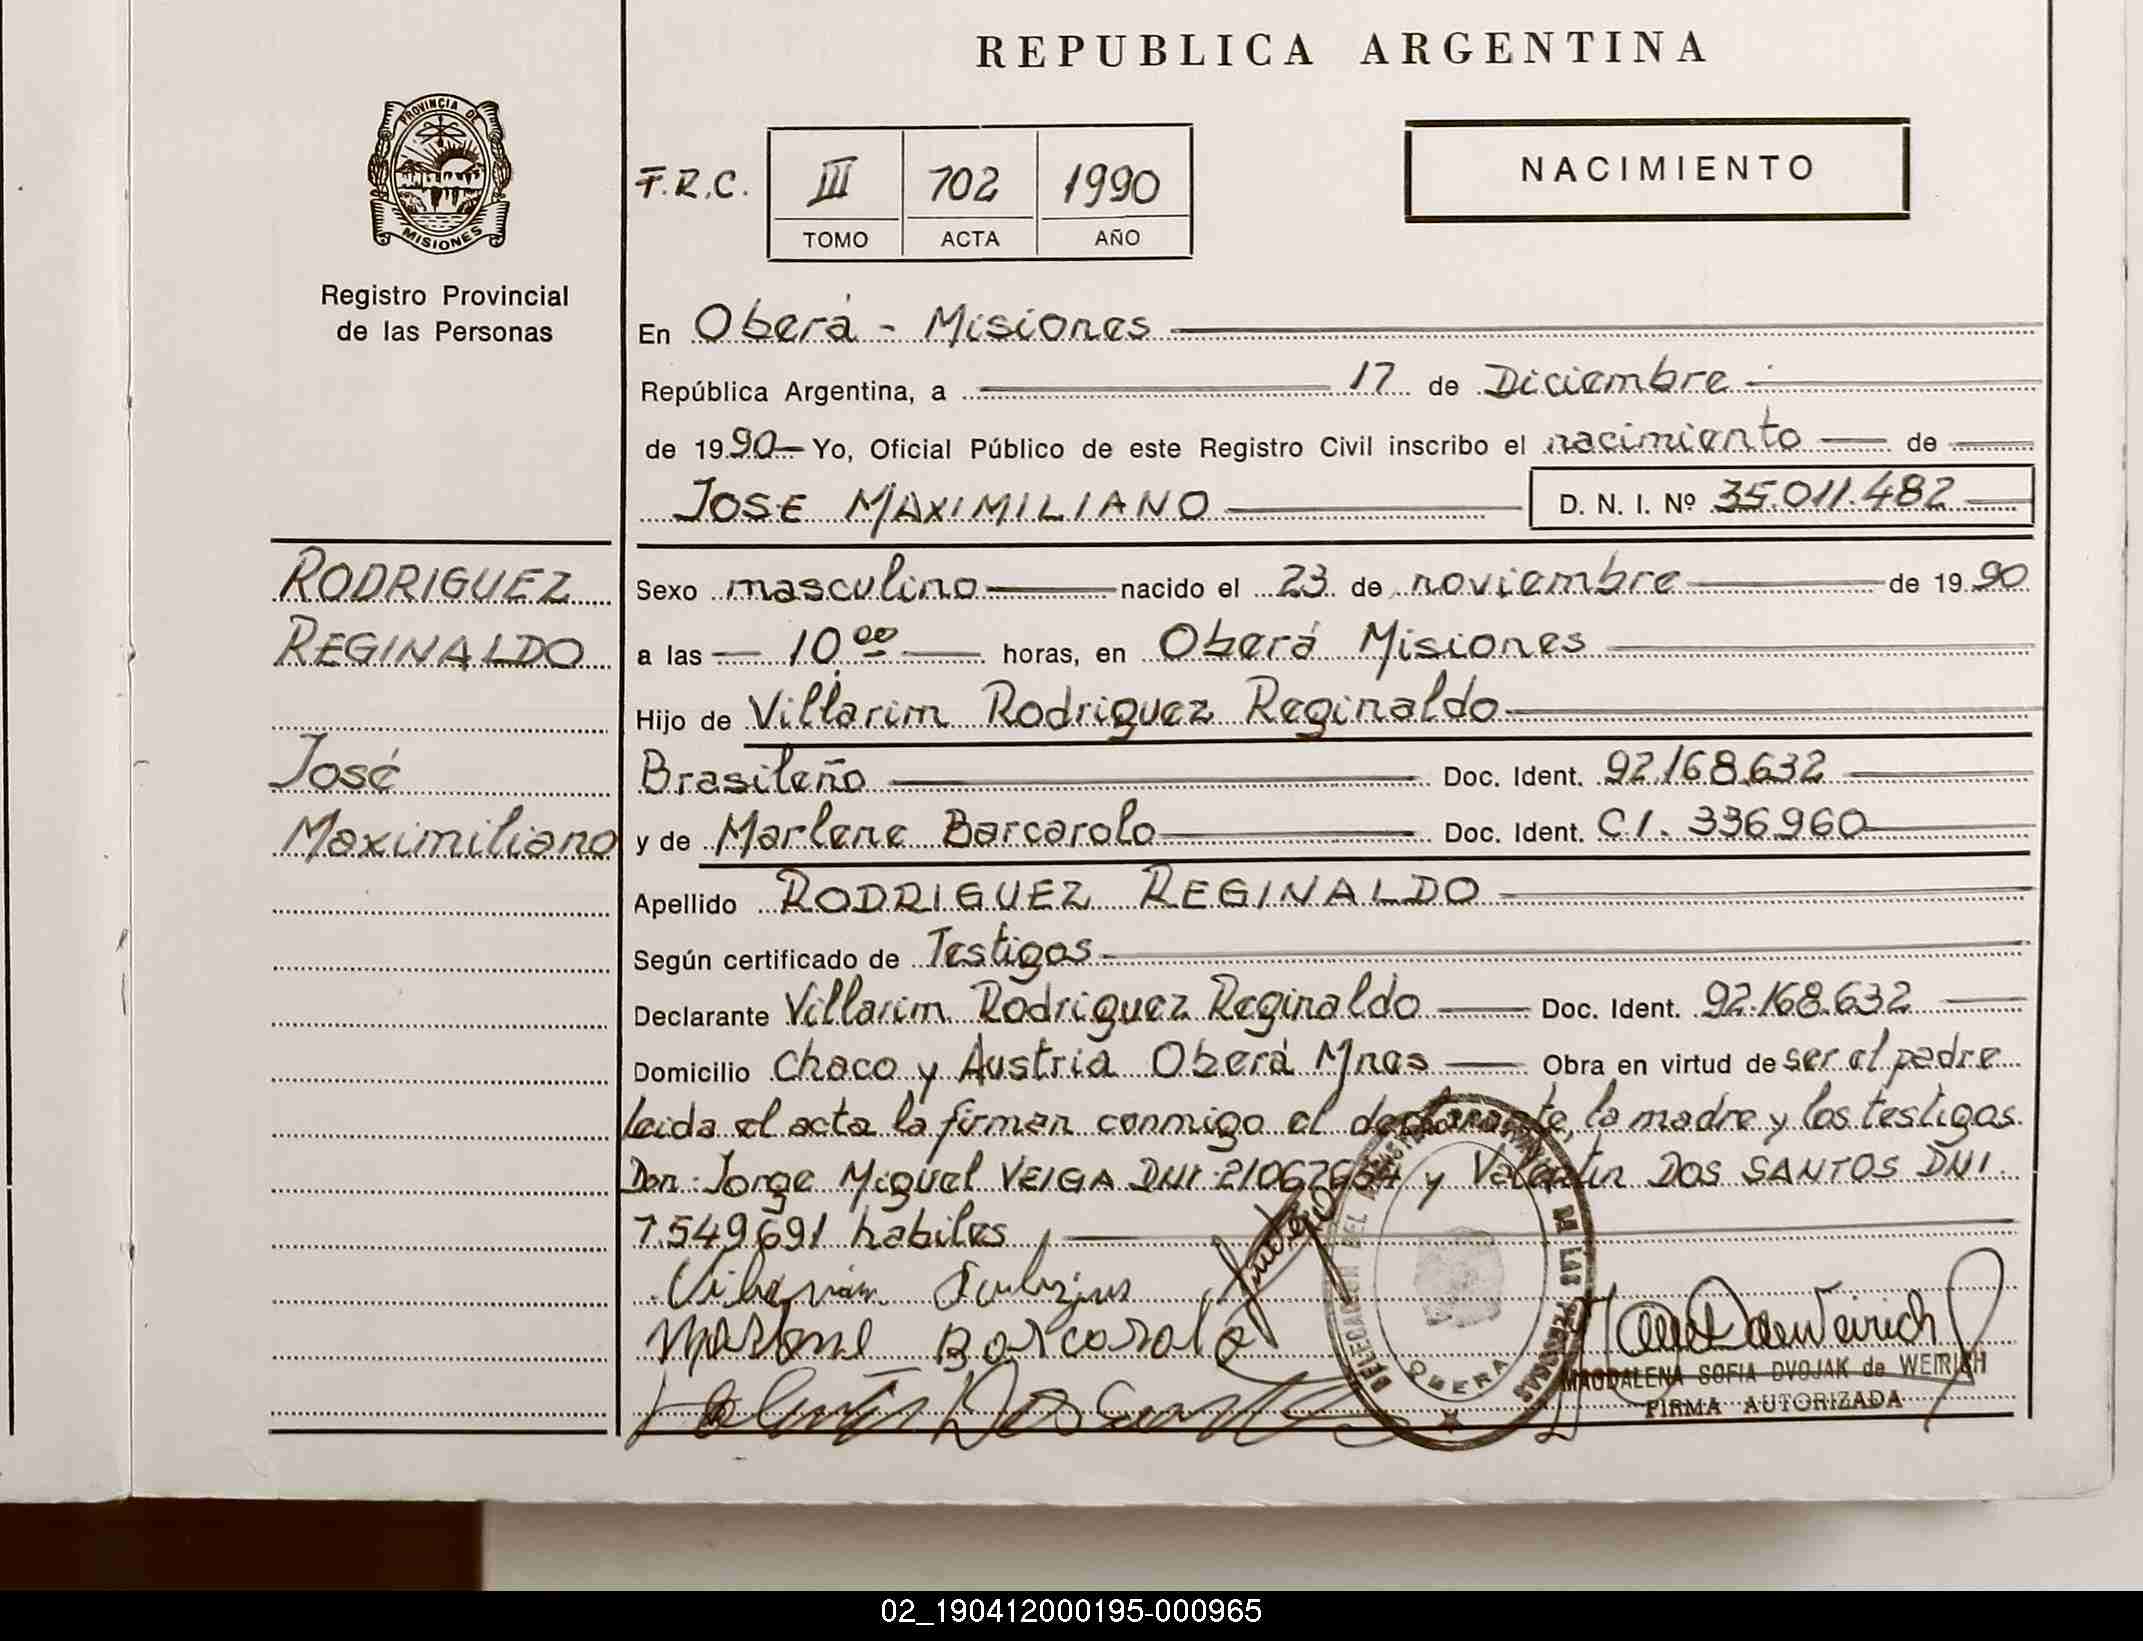 REPUBLICA ARGENTINA
PROVINCIA DE
MISIONES
Registro Provincial
de las Personas
F.R.C.
III 702 1990
TOMO ACTA AÑO
NACIMIENTO
En Oberá - Misiones
República Argentina, a 17 de Diciembre
de 1990 Yo, Oficial Público de este Registro Civil inscribo el nacimiento de
JOSE MAXIMILIANO D. N. I. Nº 35.011.482
RODRIGUEZ
REGINALDO
José
Maximiliano
Sexo masculino nacido el 23 de noviembre de 1990
a las 10.00 horas, en Oberá Misiones
Hijo de Villarim Rodriguez Reginaldo
Brasileño Doc. Ident. 92.168.632
y de Marlene Barcarolo Doc. Ident. C.I. 336960
Apellido RODRIGUEZ REGINALDO
Según certificado de Testigos
Declarante Villarim Rodriguez Reginaldo Doc. Ident. 92.168.632
Domicilio Chaco y Austria Oberá Mnes Obra en virtud de ser el padre
leida el acta la firman conmigo el declarante, la madre y los testigos
Don: Jorge Miguel VEIGA DNI y Valentin DOS SANTOS DNI
7.549691 habiles
Marlene Barcarolo
DELEGACION DEL REGISTRO PROVINCIAL DE LAS PERSONAS
OBERA
MAGDALENA SOFIA DVOJAK de WEIRICH
FIRMA AUTORIZADA
02_190412000195-000965